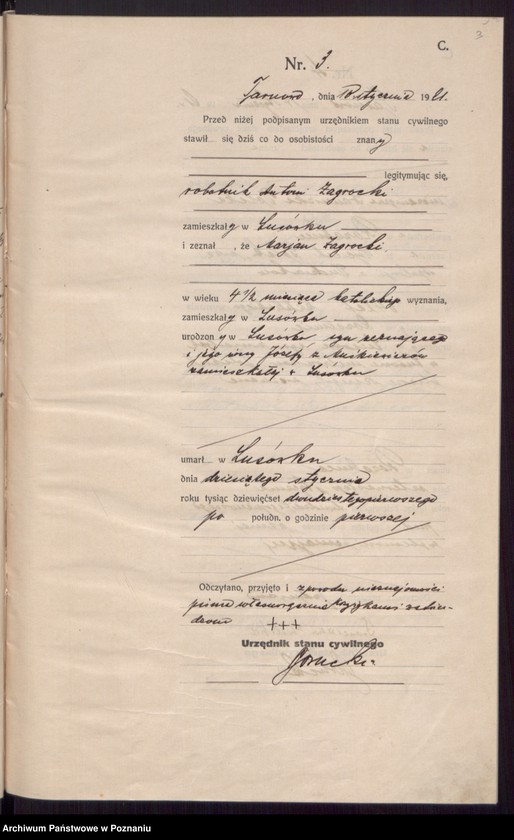 3
C.
Nr. 3.
, dnia stycznia 1921.
Przed niżej podpisanym urzędnikiem stanu cywilnego
stawił się dziś co do osobistości znany
legitymując się,
robotnik Antoni Zagrocki
zamieszkały w Lusówku
i zeznał , że Marjan Zagrocki
w wieku 4 1/2 miesiąca katolickiego wyznania,
zamieszkały w Lusówku
urodzony w Lusówku syn zeznającego
i jego żony Józefy z
zamieszkałej w Lusówku
umarł w Lusówku
dnia dziewiątego stycznia
roku tysiąc dziewięćset dwudziestegopierwszego
po połudn. o godzinie pierwszej
Odczytano, przyjęto i z powodu nieznajomości
pisma własnoręcznie krzyżkami stwier-
dzono +++
Urzędnik stanu cywilnego
Archiwum Państwowe w Poznaniu